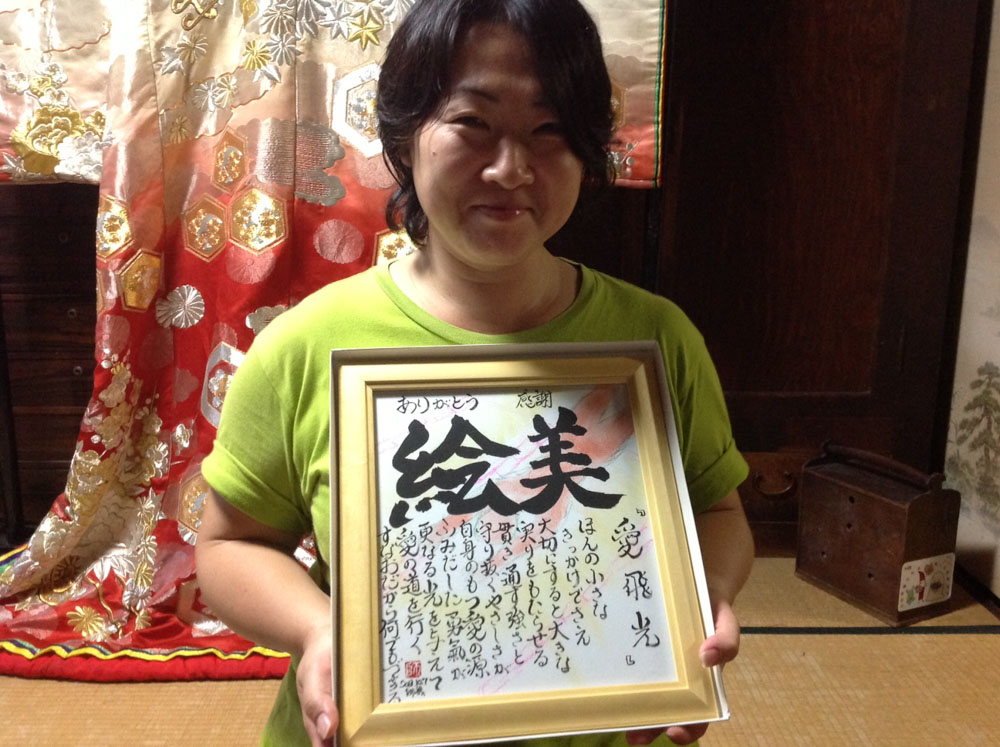 ありがとう 感謝
絵美
『愛飛光』
ほんの小さな
きっかけでさえ
大切にすると大きな
実りをもたらせる
貫き通す強さと
守り抜くやさしさが
自身のもつ愛の源
ふみだした勇氣が
更なる光を与えて
愛の道を行く
すなおだから何でもできる